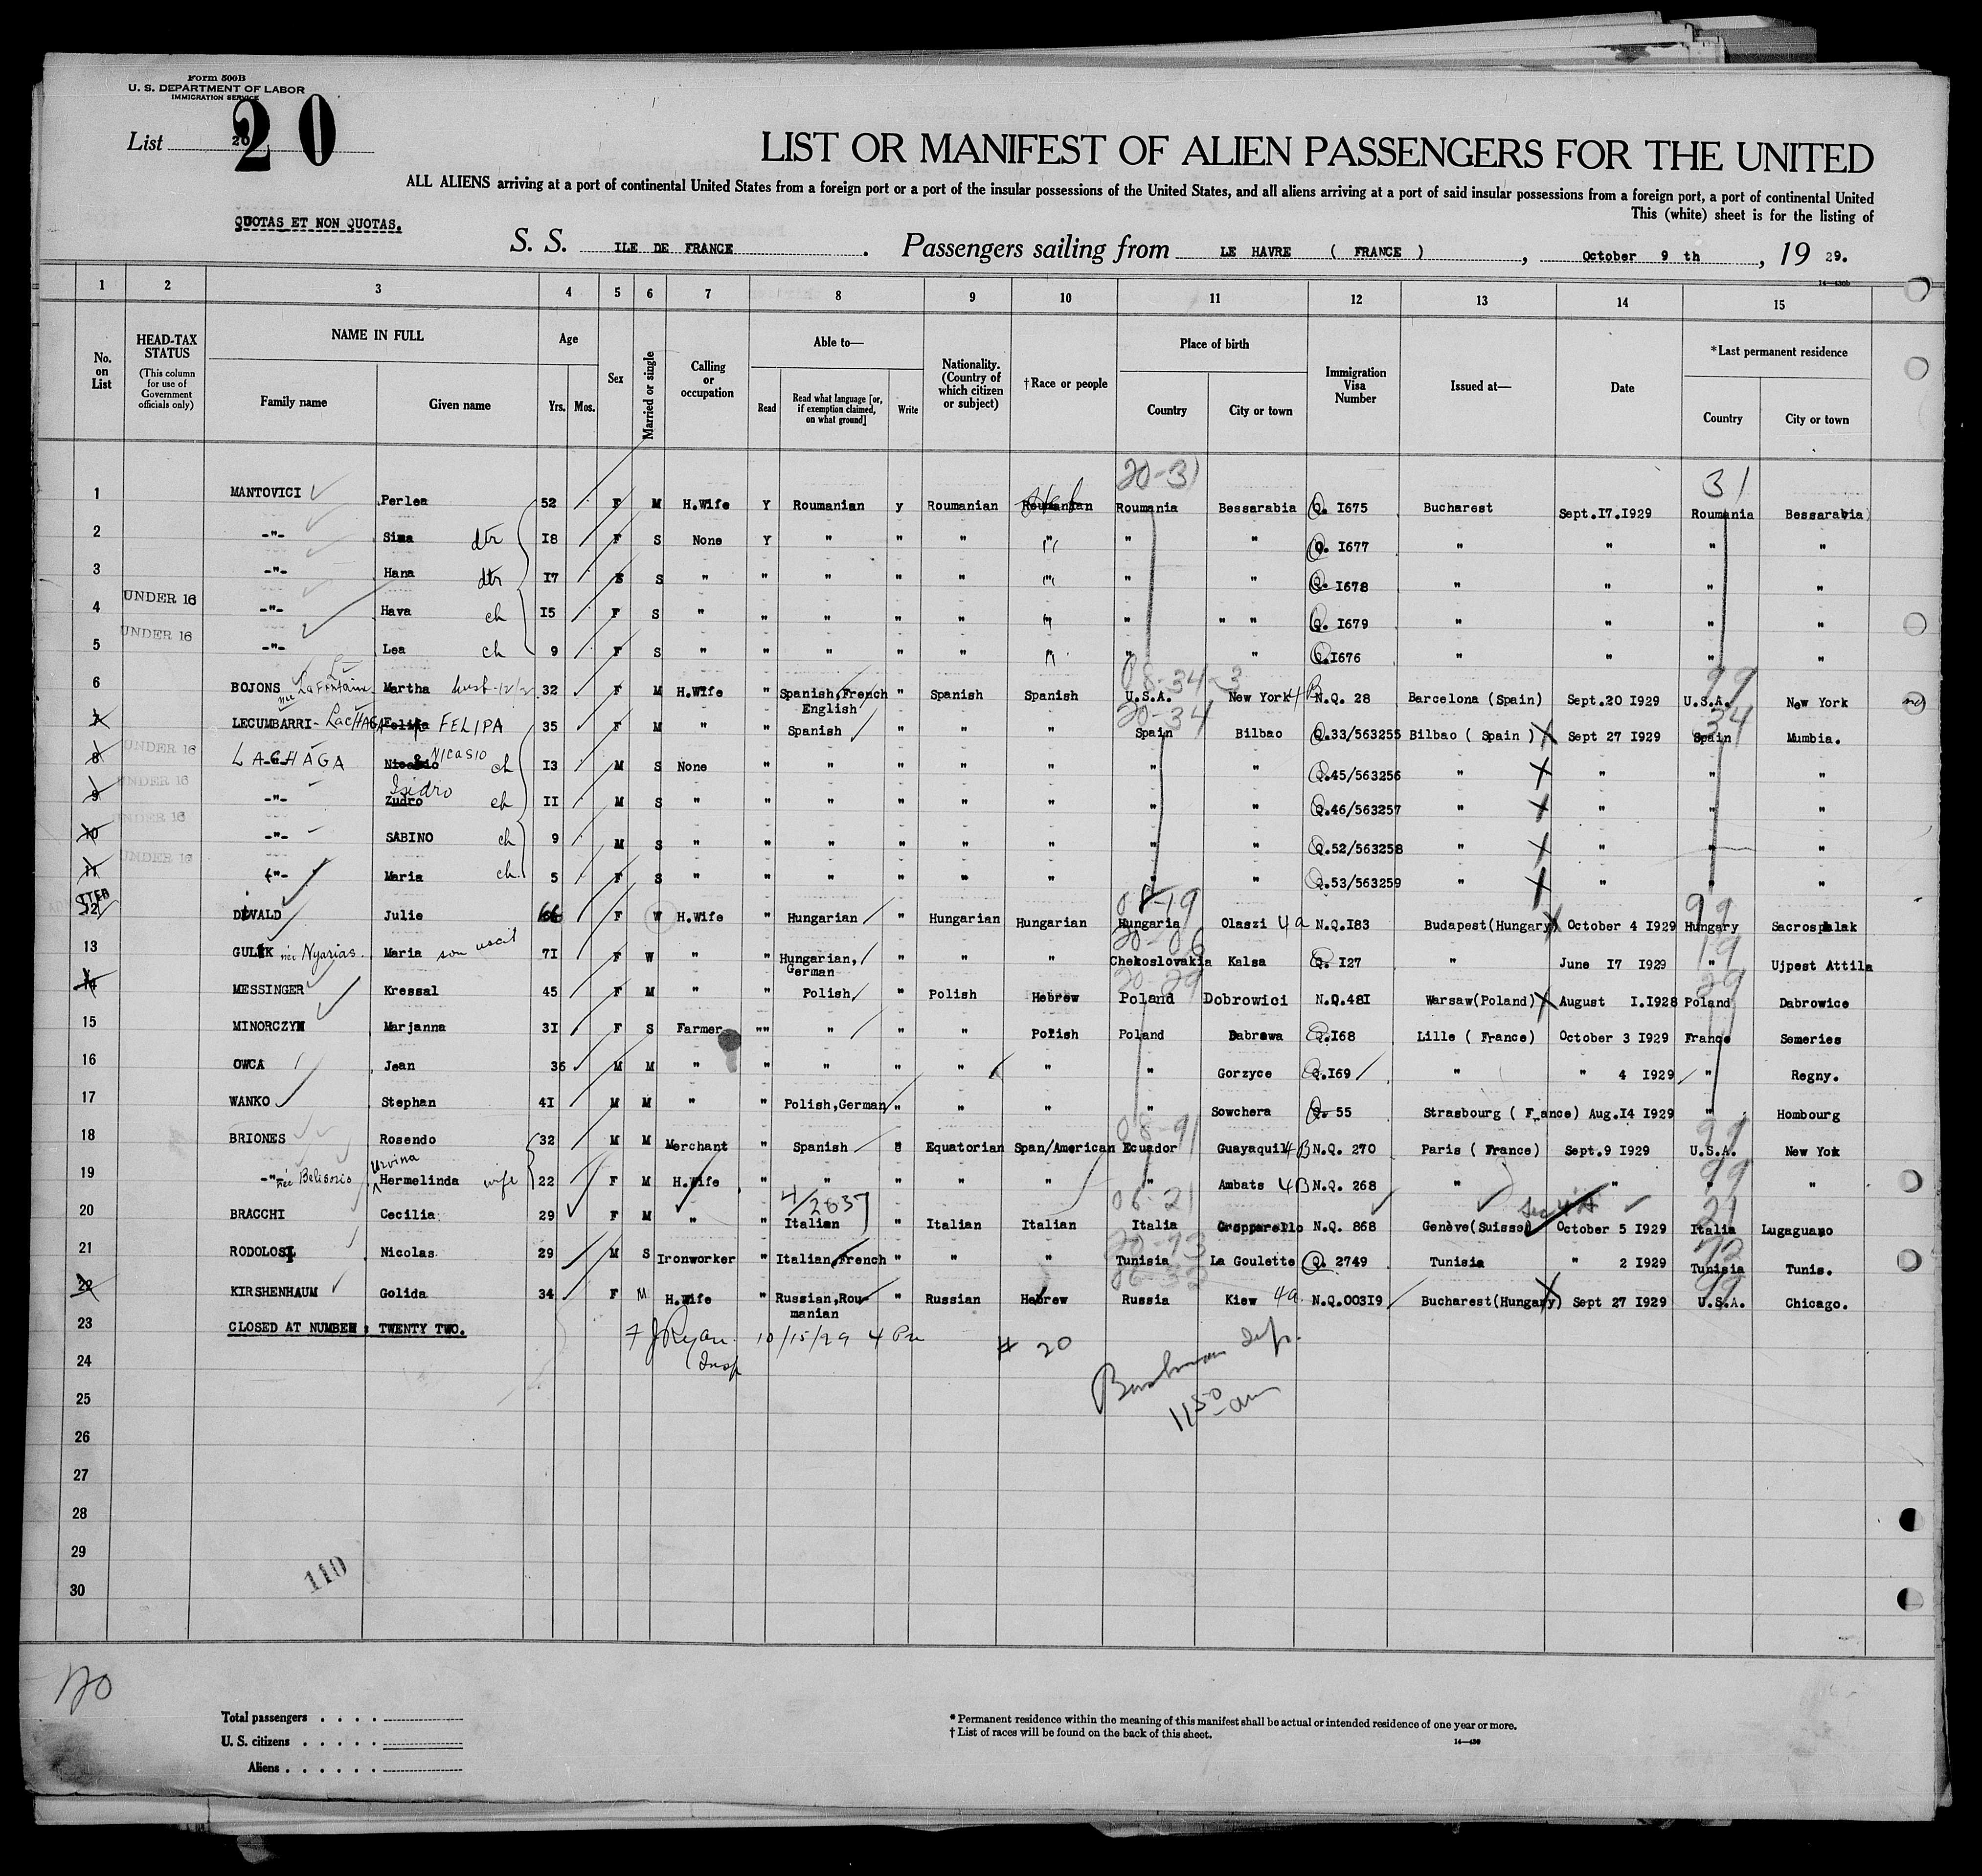 Form 500B
U. S. DEPARTMENT OF LABOR
IMMIGRATION SERVICE
List 20
20
LIST OR MANIFEST OF ALIEN PASSENGERS FOR THE UNITED
ALL ALIENS arriving at a port of continental United States from a foreign port or a port of the insular possessions of the United States, and all aliens arriving at a port of said insular possessions from a foreign port, a port of continental United
This (white) sheet is for the listing of
QUOTAS ET NON QUOTAS.
S. S. ILE DE FRANCE . Passengers sailing from LE HAVRE ( FRANCE ) , October 9 th , 19 29.
14—430b
1 2 3 4 5 6 7 8 9 10 11 12 13 14 15
No. on List
HEAD-TAX STATUS (This column for use of Government officials only)
NAME IN FULL Family name Given name
Age Yrs. Mos.
Sex
Married or single
Calling or occupation
Able to— Read Read what language [or, if exemption claimed, on what ground] Write
Nationality. (Country of which citizen or subject)
†Race or people
Place of birth Country City or town
Immigration Visa Number
Issued at—
Date
*Last permanent residence Country City or town
20-31 31
1 MANTOVICI Perlea 52 F M H.Wife Y Roumanian y Roumanian Roumanian Roumania Bessarabia Q. I675 Bucharest Sept.I7.I929 Roumania Bessarabia
2 -"- Sima dtr I8 F S None Y " " " " " " Q. I677 " " " "
3 -"- Hana dtr I7 S " " " " " " " " Q. I678 " " " "
4 UNDER 16 -"- Hava ch I5 F S " " " " " " " " " Q. I679 " " " "
5 UNDER 16 -"- Lea ch 9 F S " " " " " " " " Q.I676 " " " "
08-34-3 99
6 BOJONS née LaFontaine Martha 32 F M H.Wife " Spanish,French English " Spanish Spanish U.S.A. New York 4B N.Q. 28 Barcelona (Spain) Sept.20 I929 U.S.A. New York
20-34 34
7 LECUMBARRI- LACHAGA FELIPA 35 F M " " Spanish " " " Spain Bilbao Q.33/563255 Bilbao ( Spain ) X Sept 27 I929 Spain Mumbia.
8 UNDER 16 LACHAGA NICASIO ch I3 M S None " " " " " " " Q.45/563256 " X " " "
9 UNDER 16 -"- Zudro Isidro ch II M S " " " " " " " " Q.46/563257 " X " " "
10 UNDER 16 -"- SABINO ch 9 M S " " " " " " " " Q.52/563258 " X " " "
11 UNDER 16 -"- Maria ch. 5 F S " " " " " " " " Q.53/563259 " X " " "
08-19 99
12 DIVALD Julie 66 F W H.Wife " Hungarian " Hungarian Hungarian Hungaria Olaszi 4a N.Q.I83 Budapest(Hungary) X October 4 I929 Hungary Sacrospalak
20-06 19
13 GULIK née Nyarias. Maria 7I F W " " Hungarian, German " " " Chekoslovakia Kalsa Q. I27 " June I7 I929 " Ujpest Attila
20-29 29
14 MESSINGER Kressal 45 F M " " Polish " Polish Hebrew Poland Dobrowici N.Q.48I Warsaw(Poland) X August I.I928 Poland Dabrowice
15 MINORCZYN Marjanna 3I F S Farmer "" " " " Polish Poland Dabrowa Q.I68 Lille ( France) October 3 I929 France Semeries
16 OWCA Jean 36 M M " " " " " " " Gorzyce Q.I69 " " 4 I929 " Regny.
17 WANKO Stephan 4I M M " " Polish,German " " " " Sowchera Q. 55 Strasbourg ( France) Aug.I4 I929 " Hombourg
08-91 99
18 BRIONES Rosendo 32 M M Merchant " Spanish " Equatorian Span/American Ecuador Guayaquil 4B N.Q. 270 Paris ( France) Sept.9 I929 U.S.A. New Yok
99
19 -"- née Belisario Urvina Hermelinda wife 22 F M H.Wife " " " " " " Ambats 4B N.Q. 268 " " " "
4/2637 06-21 21
20 BRACCHI Cecilia 29 F M " " Italian " Italian Italian Italia Gropparello N.Q. 868 Genève(Suisse) October 5 I929 Italia Lugaguano
20-73 73
21 RODOLOSI Nicolas 29 M S Ironworker " Italian,French " " " Tunisia La Goulette Q. 2749 Tunisia " 2 I929 Tunisia Tunis.
06-32 99
22 KIRSHENHAUM Golida 34 F M H.Wife " Russian,Rou-manian " Russian Hebrew Russia Kiew 4a N.Q.003I9 Bucharest(Hungary) X Sept 27 I929 U.S.A. Chicago.
23 CLOSED AT NUMBER : TWENTY TWO.
F J Ryan. Insp 10/15/29 4 Pm # 20
24
11 50 am
25
26
27
28
29
30
110
120
Total passengers
U. S. citizens
Aliens
* Permanent residence within the meaning of this manifest shall be actual or intended residence of one year or more.
† List of races will be found on the back of this sheet.
14—430